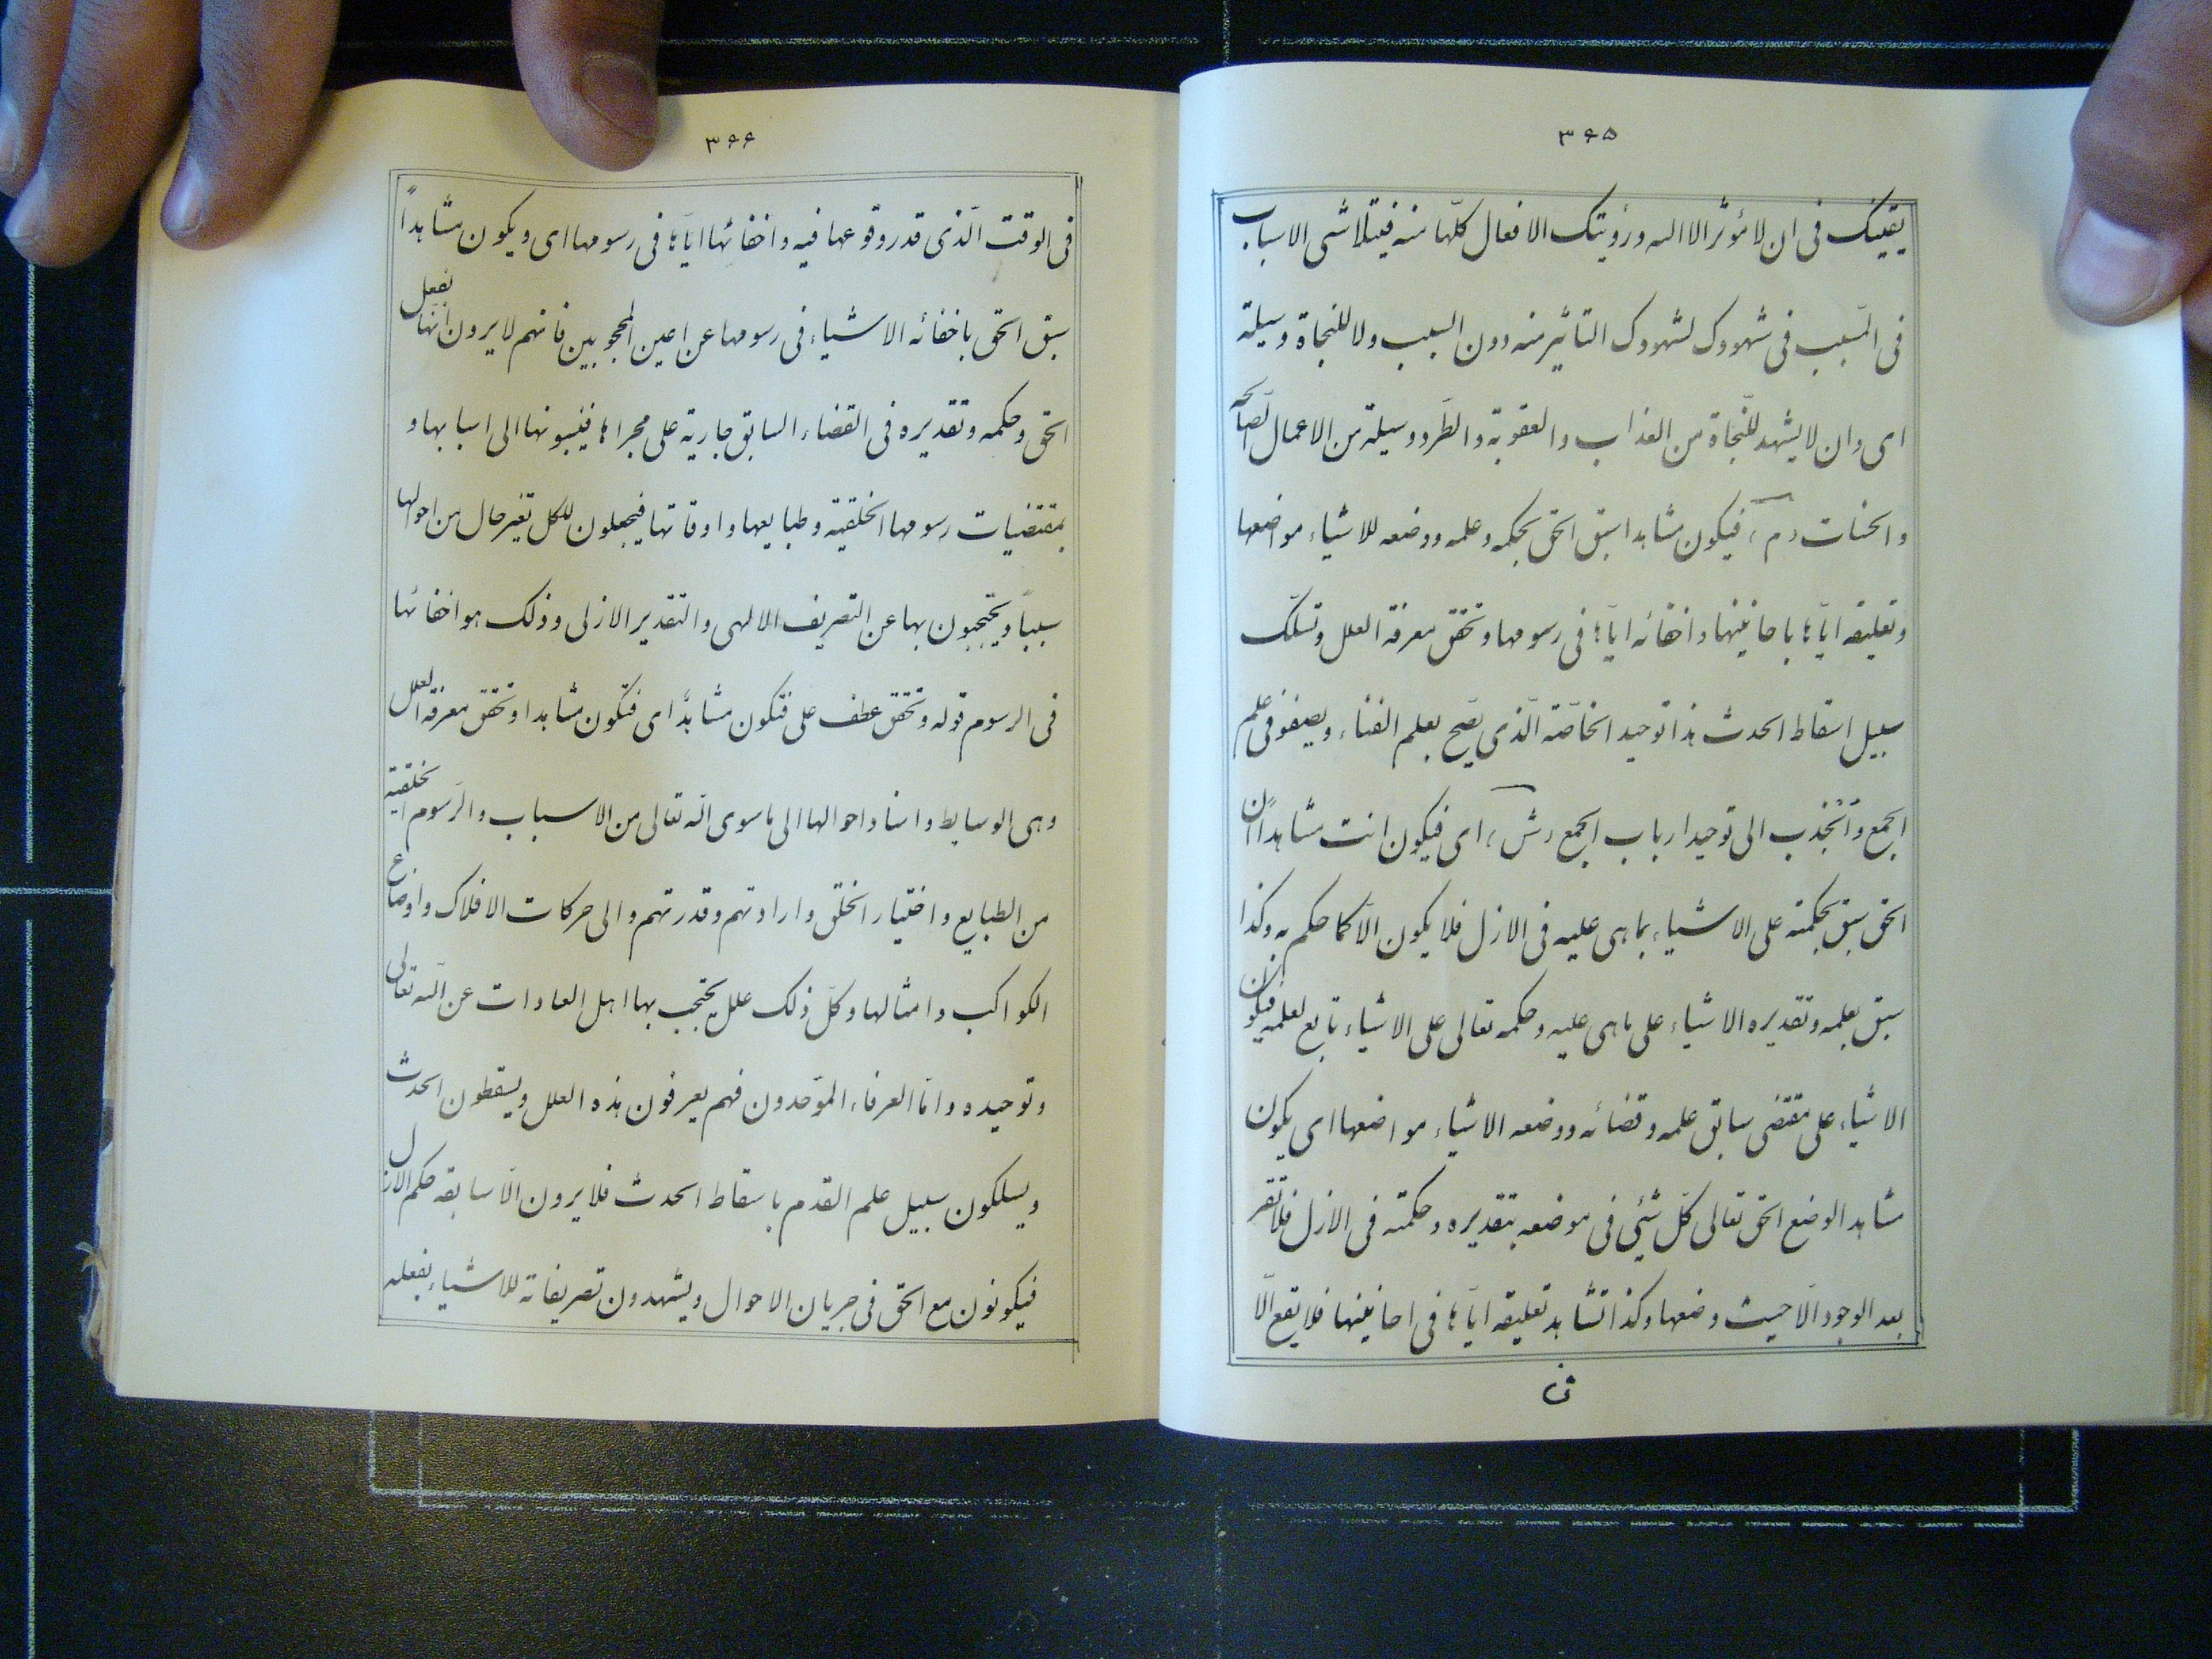 ۳۶۵
يقينك فى ان لا مؤثر الا الله ورؤيتك الافعال كلّها منه فيتلاشى الاسباب
فى المسبب فى شهودك لشهودك التاثير منه دون السبب ولا للنجاة وسيلة
اى وان لا يشهد للنّجاة من العذاب والعقوبة والطّرد وسيلة من الاعمال الصّالحة
والحسنات (م) فيكون مشاهدا سبق الحق بحكمه وعلمه ووضعه للاشياء مواضعها
وتعليقه ايّاها باحايينها واخفائه ايّاها فى رسومها وتحقق معرفة العلل وتسلك
سبيل اسقاط الحدث هذا توحيد الخاصّة الّذى يصّح بعلم الفناء ويصفو فى علم
الجمع وتنجذب الى توحيد ارباب الجمع (ش) اى فيكون انت مشاهداً ان
الحق سبق بحكمته على الاشياء بما هى عليه فى الازل فلا يكون الّا كما حكم به وكذا
سبق بعلمه وتقديره الاشياء على ما هى عليه وحكمه تعالى على الاشياء تابع لعلمه فيكون
الاشياء على مقتضى سابق علمه وقضائه ووضعه الاشياء مواضعها اى يكون
مشاهدا لوضع الحق تعالى كلّ شئى فى موضعه بتقديره وحكمته فى الازل فلا تقر
بعد الوجود الّا حيث وضعها وكذا تشاهد تعليقه ايّاها فى احايينها فلا يقع الّا
فى
۳۶۶
فى الوقت الّذى قدر وقوعها فيه واخفائها ايّاها فى رسومها اى ويكون مشاهداً
سبق الحق باخفائه الاشياء فى رسومها عن اعين المحجوبين فانهم لا يرون انّها بفعل
الحق وحكمه وتقديره فى القضاء السابق جارية على مجراها فينسبونها الى اسبابها و
بمقتضيات رسومها الخلقية وطبايعها واوقاتها فيجعلون للكل تغير حال من احوالها
سبباً ويحتجبون بها عن التصريف الالهى والتقدير الازلى وذلك هو اخفائها
فى الرسوم قوله وتحقق عطف على فتكون مشاهدًا اى فتكون مشاهدا وتحقق معرفة العلل
وهى الوسايط واسناد احوالها الى ما سوى اللّه تعالى من الاسباب والرّسوم الخلقية
من الطبايع واختيار الخلق وارادتهم وقدرتهم والى حركات الافلاك واوضاع
الكواكب وامثالها وكلّ ذلك علل يحتجب بها اهل العادات عن اللّه تعالى
وتوحيده وامّا العرفاء الموّحدون فهم يعرفون هذه العلل ويسقطون الحدث
ويسلكون سبيل علم القدم باسقاط الحدث فلا يرون الّا سابقه حكم الازل
فيكونون مع الحق فى جريان الاحوال ويشهدون تصريفاته للاشياء بفعله